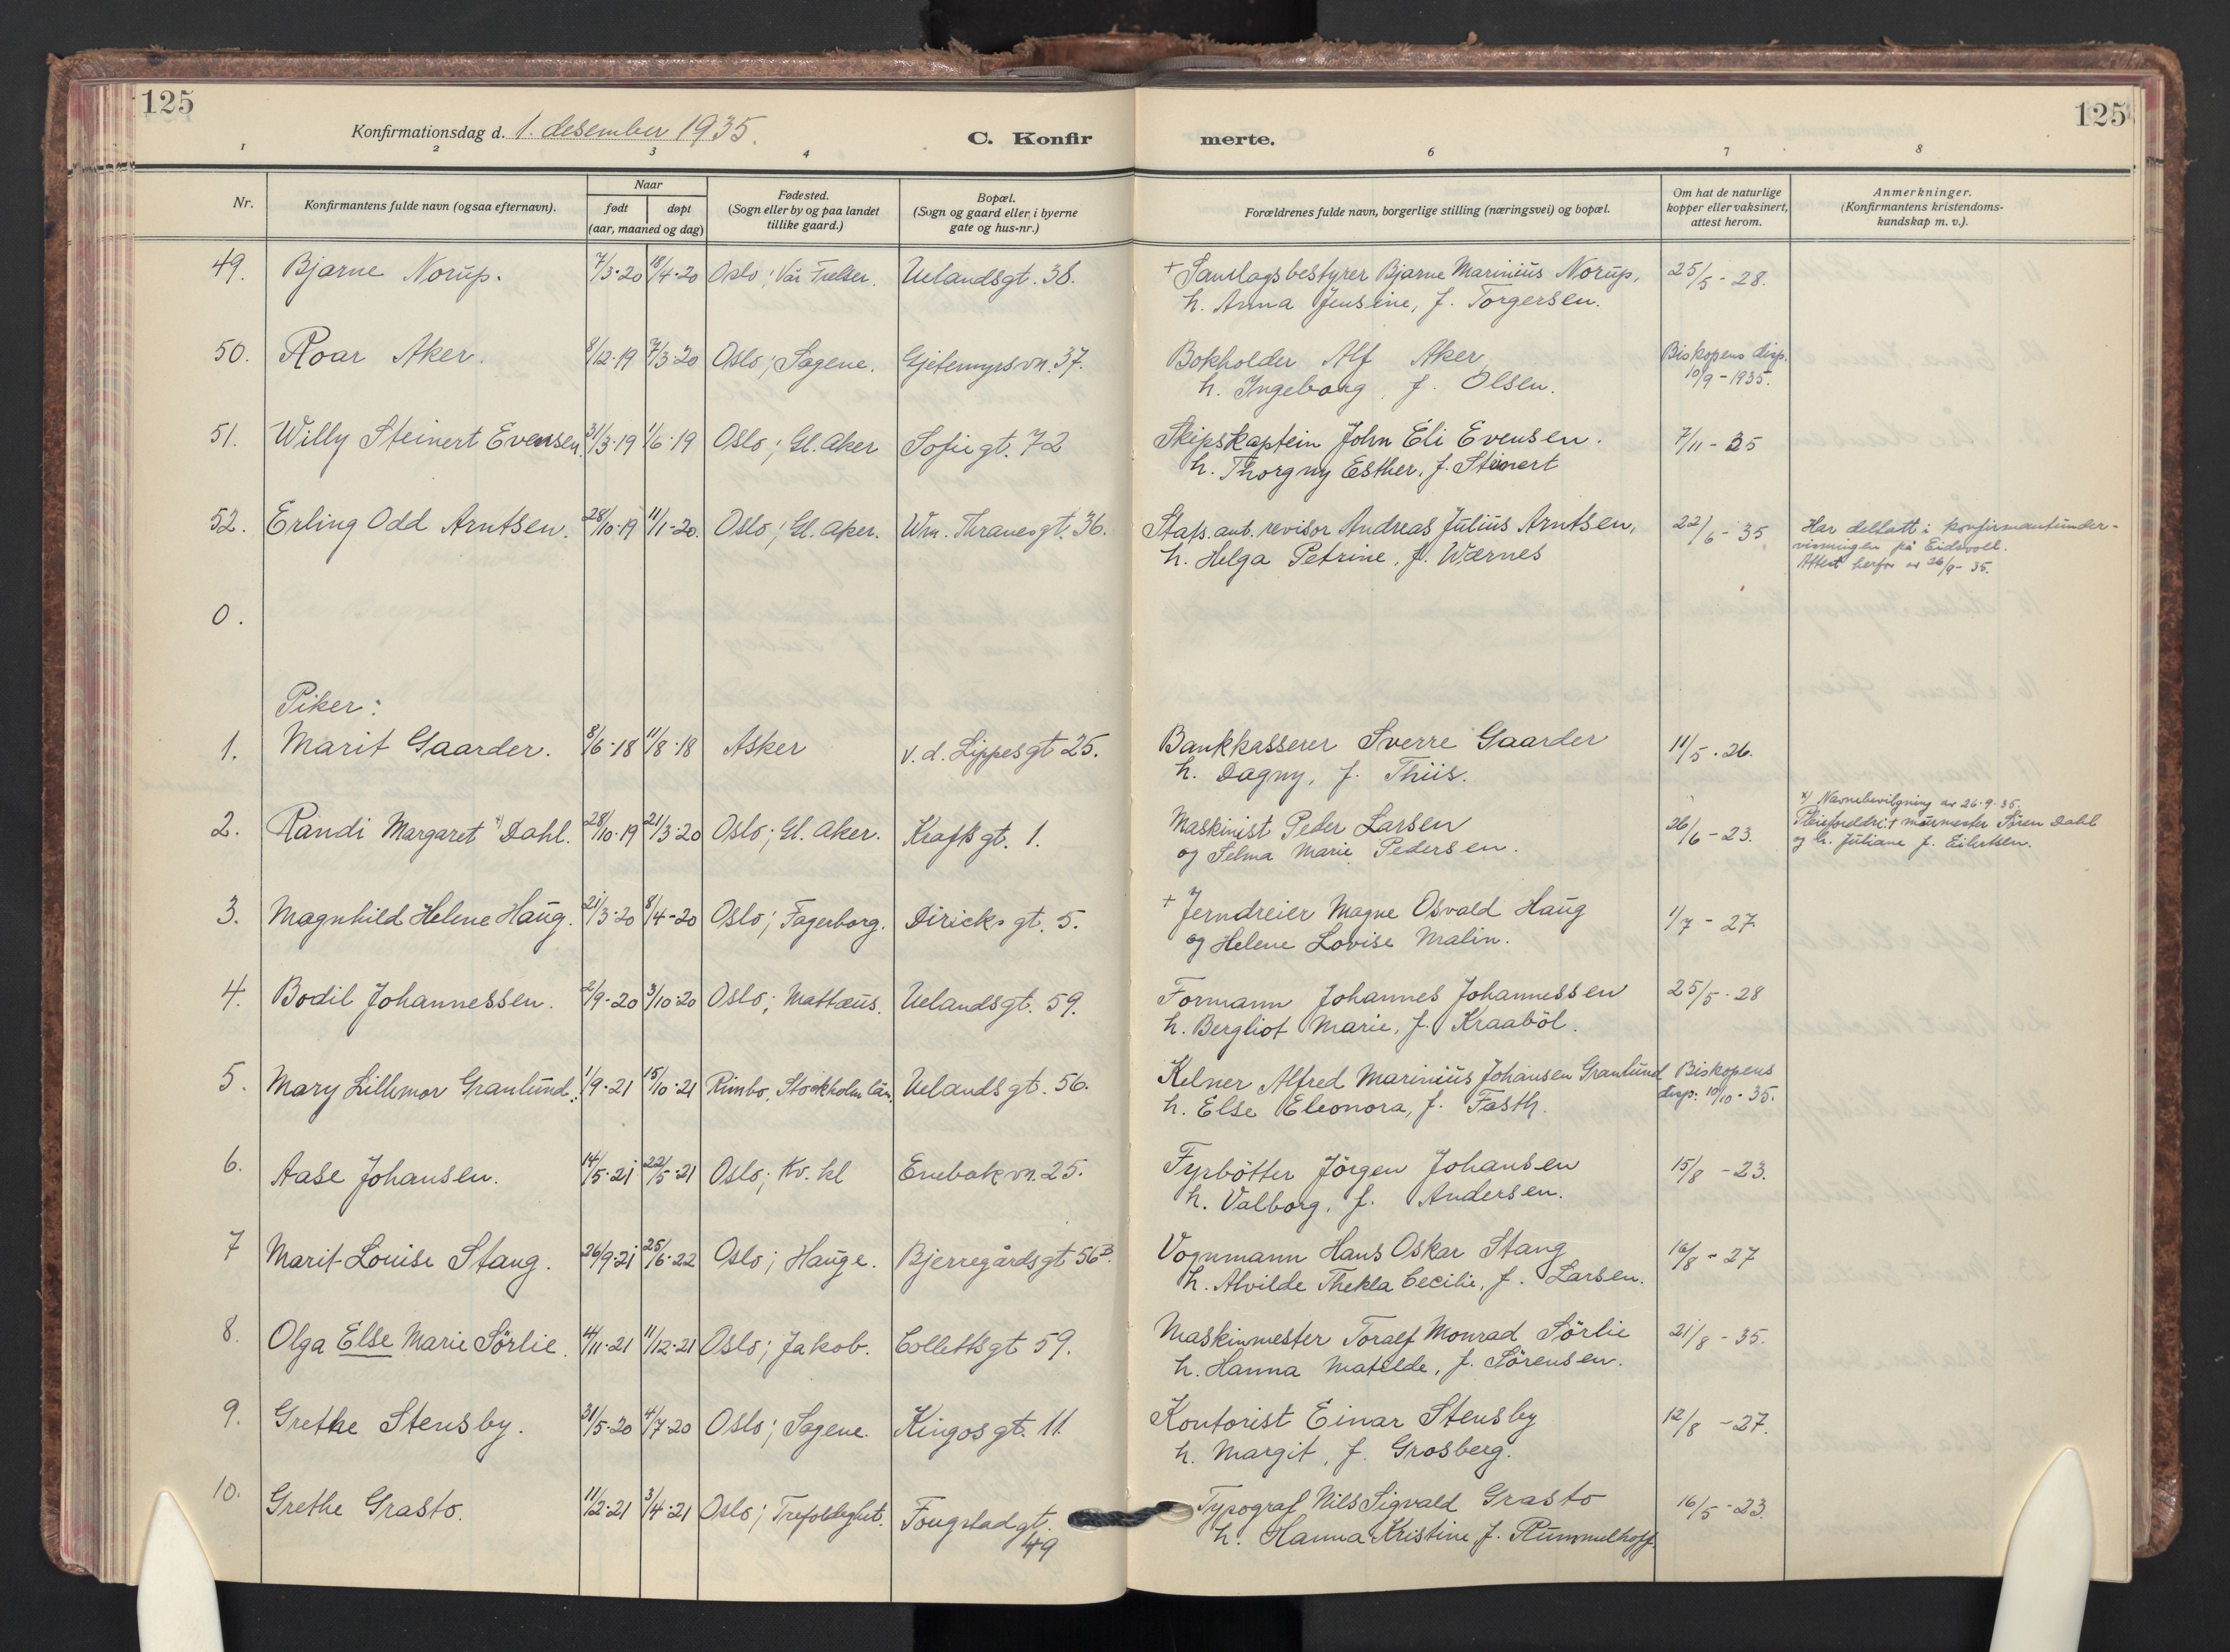 125
125
Konfirmationsdag d. 1. desember 1935.
C. Konfir merte.
1 2 3 4 6 7 8
Nr.
Konfirmantens fulde navn (ogsaa efternavn).
Naar
født døpt
(aar, maaned og dag)
Fødested.
(Sogn eller by og paa landet
tillike gaard.)
Bopæl.
(Sogn og gaard eller i byerne
gate og hus-nr.)
Forældrenes fulde navn, borgerlige stilling (næringsvei) og bopæl.
Om hat de naturlige
kopper eller vaksinert,
attest herom.
Anmerkninger.
(Konfirmantens kristendoms-
kundskap m. v.).
49. Bjarne Norup. 7/3·20 18/4·20 Oslo; Vår Frelser. Uelandsgt. 38. + Samlagsbestyrer Bjarne Marinius Norup, 25/5 - 28.
h. Anna Jensine, f. Torgersen.
50. Roar Aker. 8/12·19 7/3·20 Oslo; Sagene. Gjetemyrsvn. 37. Bokholder Alf Aker Biskopens disp.
h. Ingeborg, f. Olsen. 10/9 - 1935.
51. Willy Steinert Evensen. 31/3·19 1/6·19 Oslo; Gl. Aker Sofiegt. 72 Skipskaptein John Eli Evensen. 7/11 - 35
h. Thorgny Esther, f. Steinert
52. Erling Odd Arntsen. 28/10·19 11/1·20. Oslo; Gl. Aker. Wm. Thranesgt. 36. Stats. aut. revisor Andreas Julius Arntsen, 22/6 - 35 Har deltatt i konfirmantunder-
h. Helga Petrine, f. Wærnes visningen på Eidsvoll.
Attest herfor av 26/9 - 35.
0.
Piker:
1. Marit Gaarder. 8/6·18 11/8·18 Asker v. d. Lippesgt 25. Bankkasserer Sverre Gaarder 11/5·26.
h. Dagny, f. Thiis.
2. Randi Margaret x) Dahl. 28/10·19 21/3·20 Oslo; Gl. Aker. Kraftsgt. 1. Maskinist Peder Larsen 26/6 - 23. x) Navnebevilgning av 26·9·35.
og Selma Marie Pedersen. Pleieforeldre: + murmester Sören Dahl
og h. Juliane f. Eilertsen.
3. Magnhild Helene Haug. 21/3·20 8/4·20 Oslo; Fagerborg. Diricks gt. 5. + Jerndreier Magne Osvald Haug 1/7 - 27
og Helene Lovise Malin.
4. Bodil Johannessen. 2/9·20 3/10·20 Oslo; Mattæus. Uelandsgt. 59. Formann Johannes Johannessen 25/5·28
h. Bergliot Marie, f. Kraaböl.
5. Mary Lillemor Granlund. 1/9·21 15/10·21 Rimbo, Stockholm län. Uelandsgt. 56. Kelner Alfred Marinius Johansen Granlund Biskopens
h. Else Eleonora, f. Fasth. disp: 10/10·35.
6. Aase Johansen. 14/5·21 22/5·21 Oslo; Kv. kl Enebakvn. 25. Fyrbötter Jörgen Johansen 15/8 - 23.
h. Valborg, f. Andersen.
7 Marit Louise Stang. 26/9·21 25/6·22 Oslo; Hauge. Bjerregårdsgt 56B. Vognmann Hans Oskar Stang 16/8 - 27
h. Alvilde Thekla Cecilie, f. Larsen.
8. Olga Else Marie Sörlie. 4/11·21 11/12·21 Oslo; Jakob. Collettsgt 59. Maskinmester Toralf Monrad Sörlie 21/8 - 35.
h. Hanna Matilde, f. Sörensen.
9. Grethe Stensby. 31/5·20 4/7·20 Oslo; Sagene. Kingosgt. 11. Kontorist Einar Stensby 12/8 - 27.
h. Margit, f. Grosberg.
10. Grethe Grasto. 11/2·21 3/4·21 Oslo; Trefoldighet. Fougstadgt. 49 Typograf Nils Sigvald Grasto 16/5·23.
h. Hanna Kristine f. Rummelhoff.